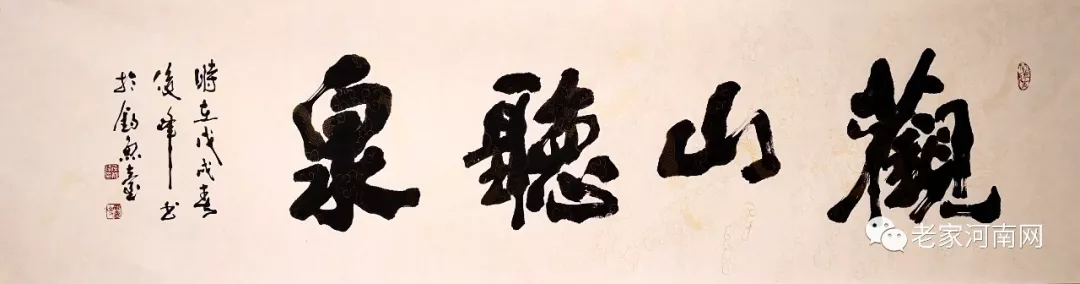 觀山聽泉
時在戊戌春
俊峰書
於釣魚臺
老家河南网